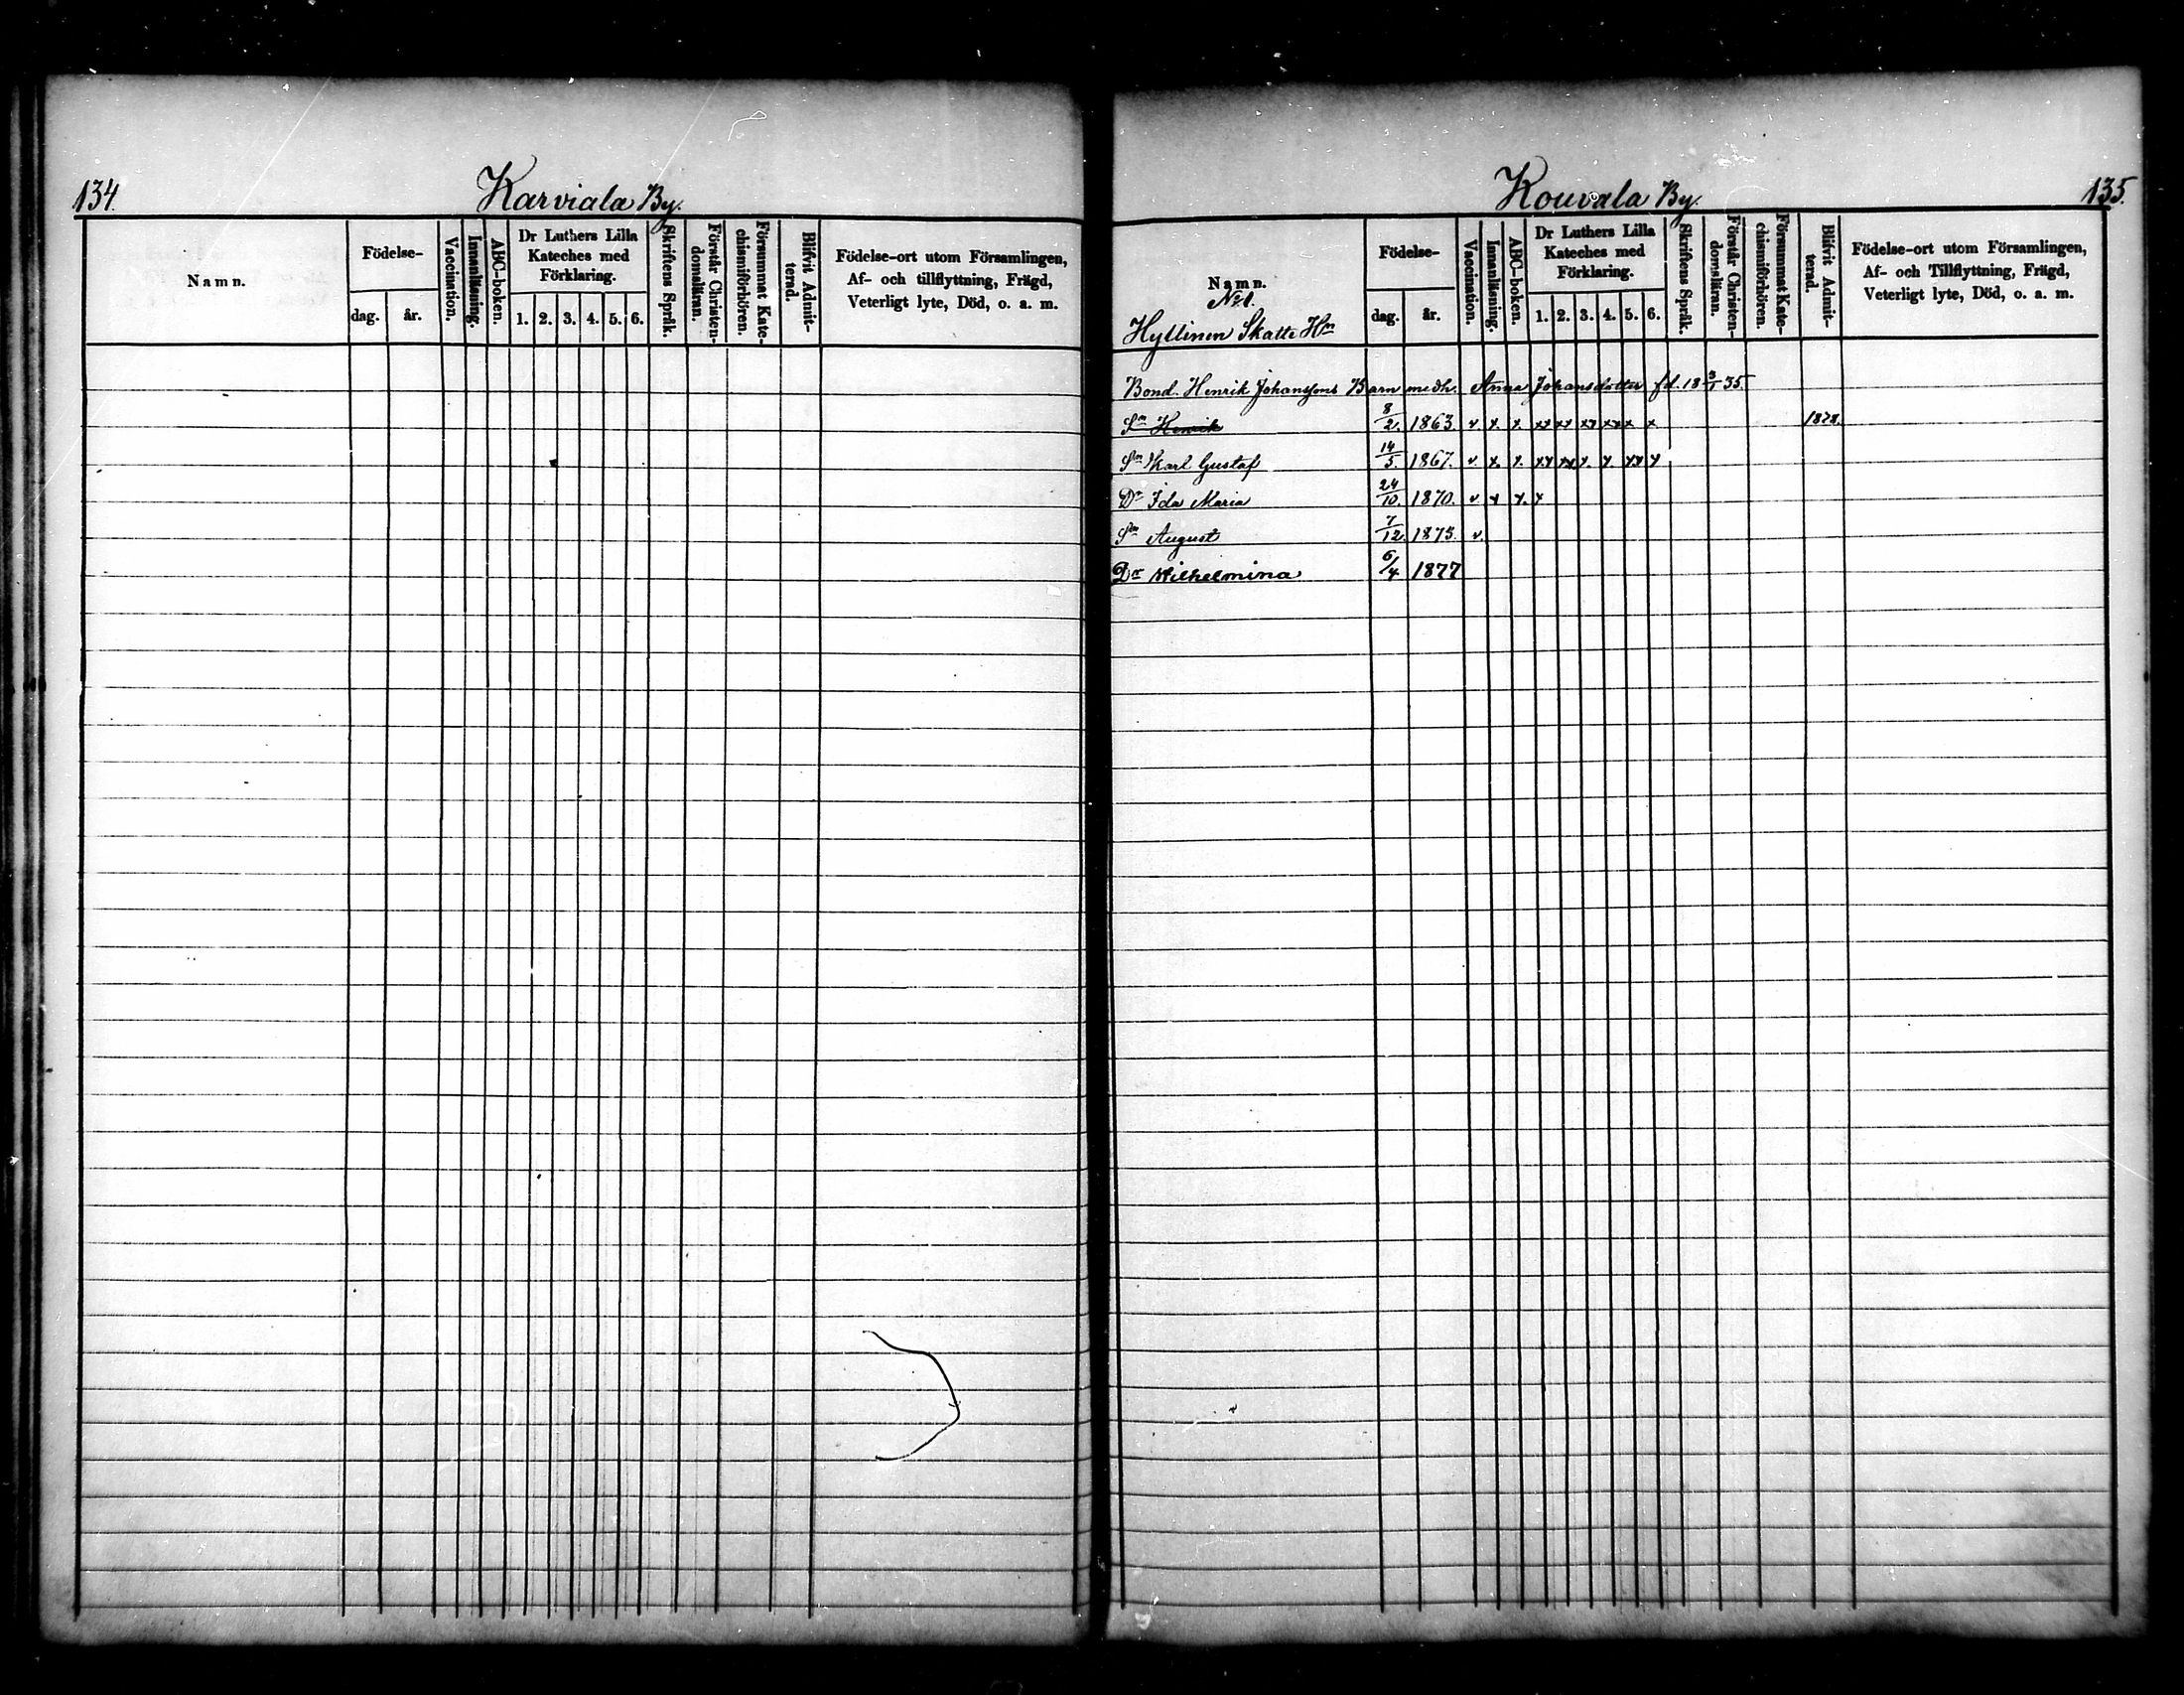 134.
Karviala By.
Namn.
Födelse-
dag.
år.
Vaccination.
Innanläsning.
ABC-boken.
Dr Luthers Lilla
Kateches med
Förklaring.
1. 2. 3. 4. 5. 6.
Skriftens Språk.
Förstår Christen-
domsläran.
Försummat Kate-
chismiförhören.
Blifvit Admit-
terad.
Födelse-ort utom Församlingen,
Af- och tillflyttning, Frägd,
Veterligt lyte, Död, o. a. m.
Kouvala By.
135.
Namn.
No 1.
Hyllinen Skatte Hn
Födelse-
dag.
år.
Vaccination.
Innanläsning.
ABC-boken.
Dr Luthers Lilla
Kateches med
Förklaring.
1. 2. 3. 4. 5. 6.
Skriftens Språk.
Förstår Christen-
domsläran.
Försummat Kate-
chismiförhören.
Blifvit Admit-
terad.
Födelse-ort utom Församlingen,
Af- och Tillflyttning, Frägd,
Veterligt lyte, Död, o. a. m.
Bond. Henrik Johanssons Barn medh. Anna Johansdotter fd. 18 3/1 35.
Sn Henrik 8/2. 1863. v x. x. xx xx xx xxx x 1878.
Sn Karl Gustaf 14/5. 1867. v. x. x. xx xx x. x. xx x
Dr Ida Maria 24/10. 1870. v x x. x
Sn August 7/12. 1875. v.
Dr Wilhelmina 6/4 1877